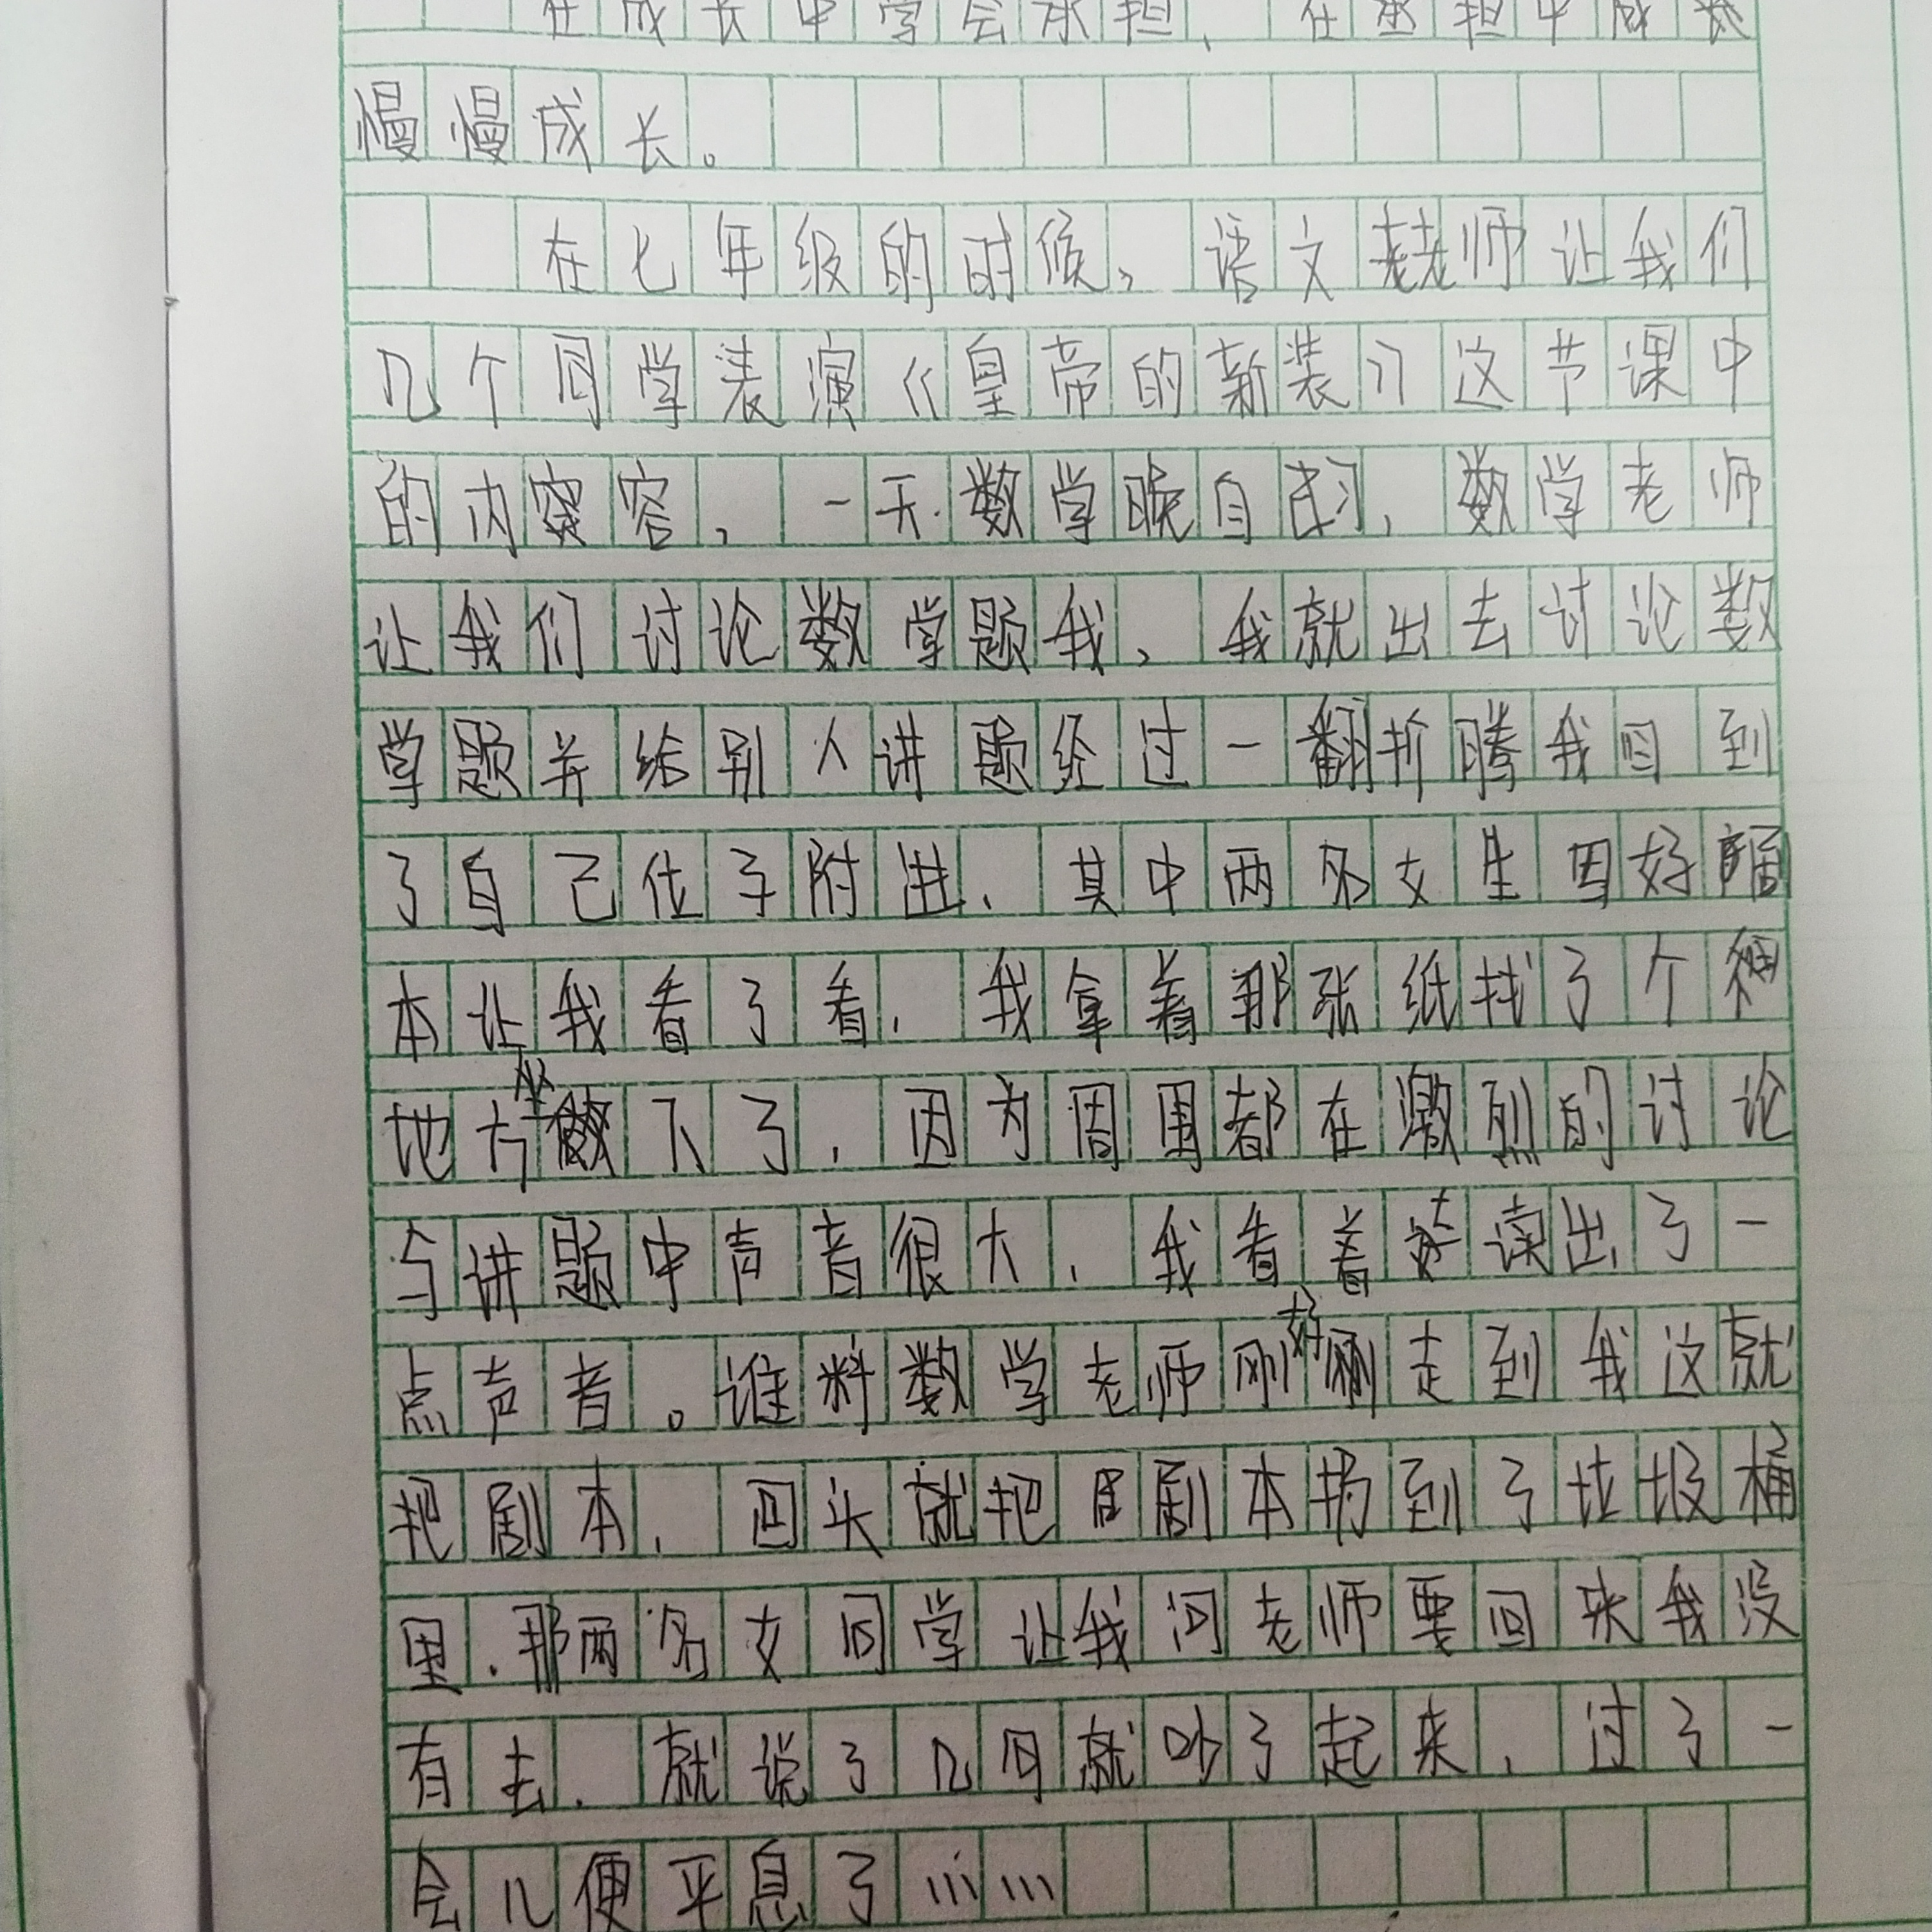 在成长中学会承担,在承担中成长
慢慢成长。
在七年级的时候,语文老师让我们
几个同学表演《皇帝的新装》这节课中
的内容,一天数学晚自习,数学老师
让我们讨论数学题我,我就出去讨论数
学题并给别人讲题经过一翻折腾我回到
了自己位子附进,其中两名女生因好
本让我看了看,我拿着那张纸找了个
地方坐下了,因为周围都在激烈的讨论
与讲题中声音很大,我看着读出了一
点声音。谁料数学老师刚好走到我这就
把剧本,回头就把剧本扔到了垃圾桶
里,那两名女同学让我问老师要回来我没
有去,就说了几句就吵了起来,过了一
会儿便平息了……